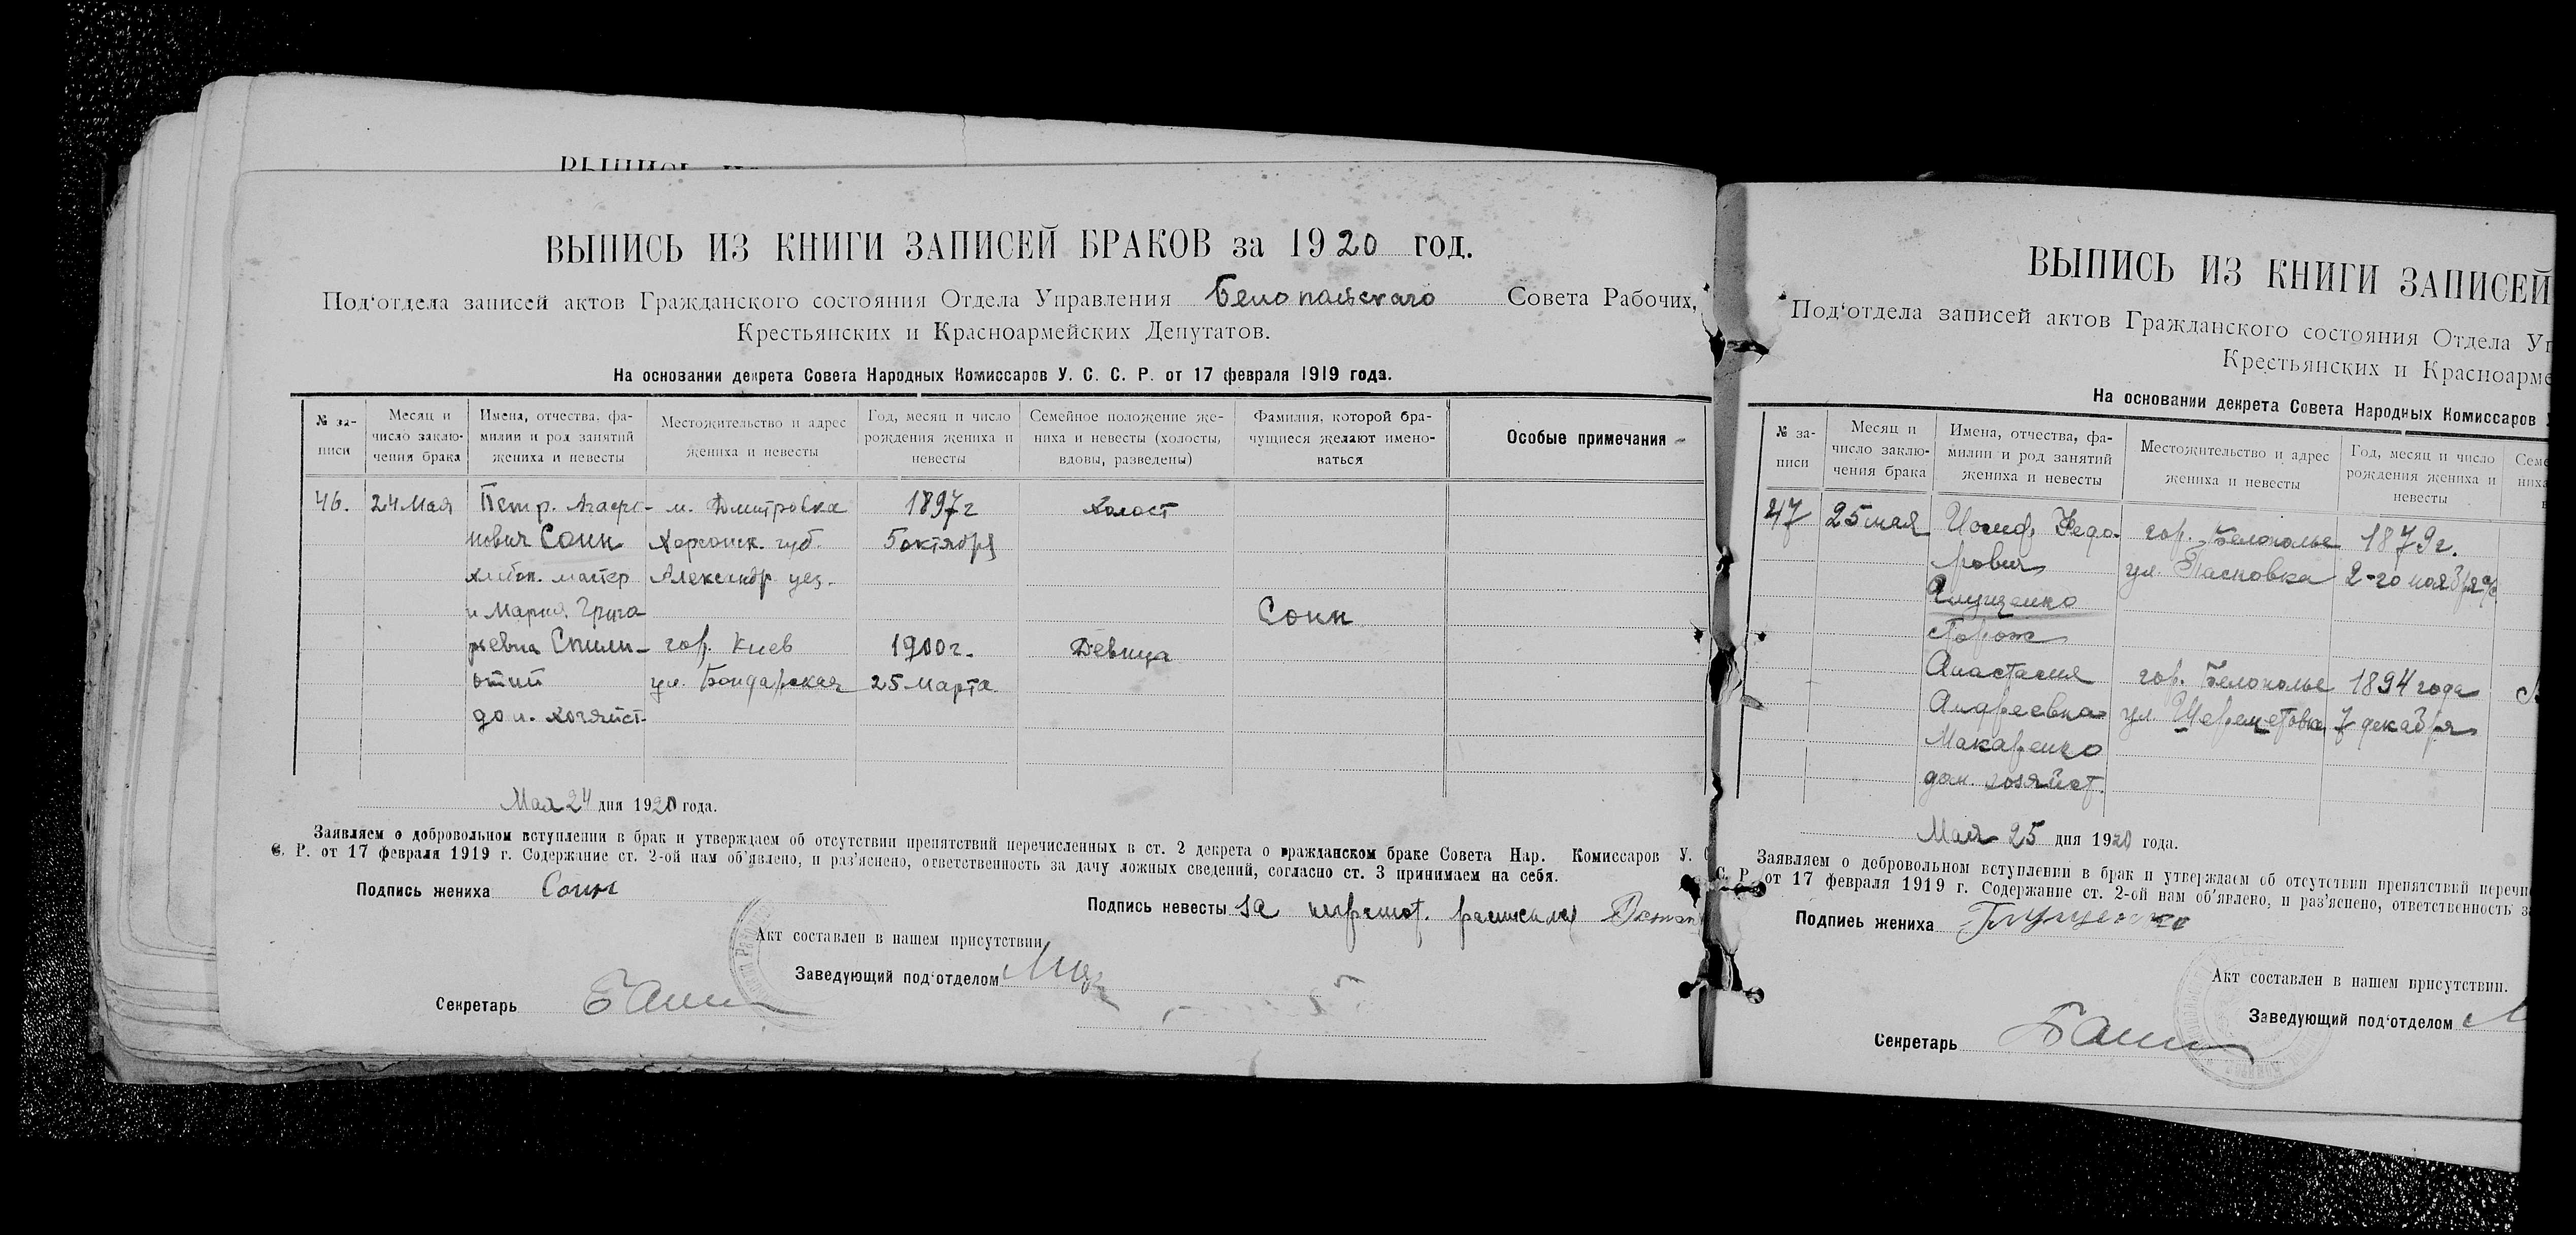 ВЫПИСЬ ИЗ КНИГИ ЗАПИСЕЙ БРАКОВ за 1920 год.
Под‘отдела записей актов Гражданского состояния Отдела Управления Белопольскаго Совета Рабочих,
Крестьянских и Красноармейских Депутатов.
На основании декрета Совета Народных Комиссаров У. С. С. Р. от 17 февраля 1919 года.
№ за-
писи
Месяц и
число заклю-
чения брака
Имена, отчества, фа-
милии и род занятий
жениха и невесты
Местожительство и адрес
жениха и невесты
Год, месяц и число
рождения жениха и
невесты
Семейное положение же-
ниха и невесты (холосты,
вдовы, разведены)
Фамилия, которой бра-
чущиеся желают имено-
ваться
Особые примечания
46. 24 Мая Петр. м. Дмитровка 1897 г Холост
нович Сонн Херсонск. губ. 5 октября
мастер Александр уез.
и Мария Грига Сонн
рьевна гор. Киев 1900 г. Девица
ул. Бондарская 25 Марта
дом. хозяйст.
Мая 24 дня 1920 года.
Заявляем о добровольном вступлении в брак и утверждаем об отсутствии препятствий перечисленных в ст. 2 декрета о гражданском браке Совета Нар. Комиссаров У. С
С. Р. от 17 февраля 1919 г. Содержание ст. 2-ой нам об‘явлено, и раз‘яснено, ответственность за дачу ложных сведений, согласно ст. 3 принимаем на себя.
Подпись жениха Сонн
Подпись невесты за неграмот.
Акт составлен в нашем присутствии
Заведующий под‘отделом
Секретарь
ВЫПИСЬ ИЗ КНИГИ ЗАПИСЕЙ
Под‘отдела записей актов Гражданского состояния Отдела Уп
Крестьянских и Красноарме
На основании декрета Совета Народных Комиссаров
№ за-
писи
Месяц и
число заклю-
чения брака
Имена, отчества, фа-
милии и род занятий
жениха и невесты
Местожительство и адрес
жениха и невесты
Год, месяц и число
рождения жениха и
невесты
Семе
ниха
47 25 мая Иосиф Федо- гор. Белополье 1879 г.
рович ул. Пасковка 2-го ноября
Глущенко
сторож
Анастасия гор. Белополье 1894 года
Андреевна ул. Шереметовка 7 декабря
Макаренко
дом. хозяйст.
Мая 25 дня 1920 года.
Заявляем о добровольном вступлении в брак и утверждаем об отсутствии препятствий перечи
С. Р. от 17 февраля 1919 г. Содержание ст. 2-ой нам об‘явлено, и раз‘яснено, ответственность з
Подпись жениха Глущенко
Акт составлен в нашем присутствии.
Заведующий под‘отделом
Секретарь